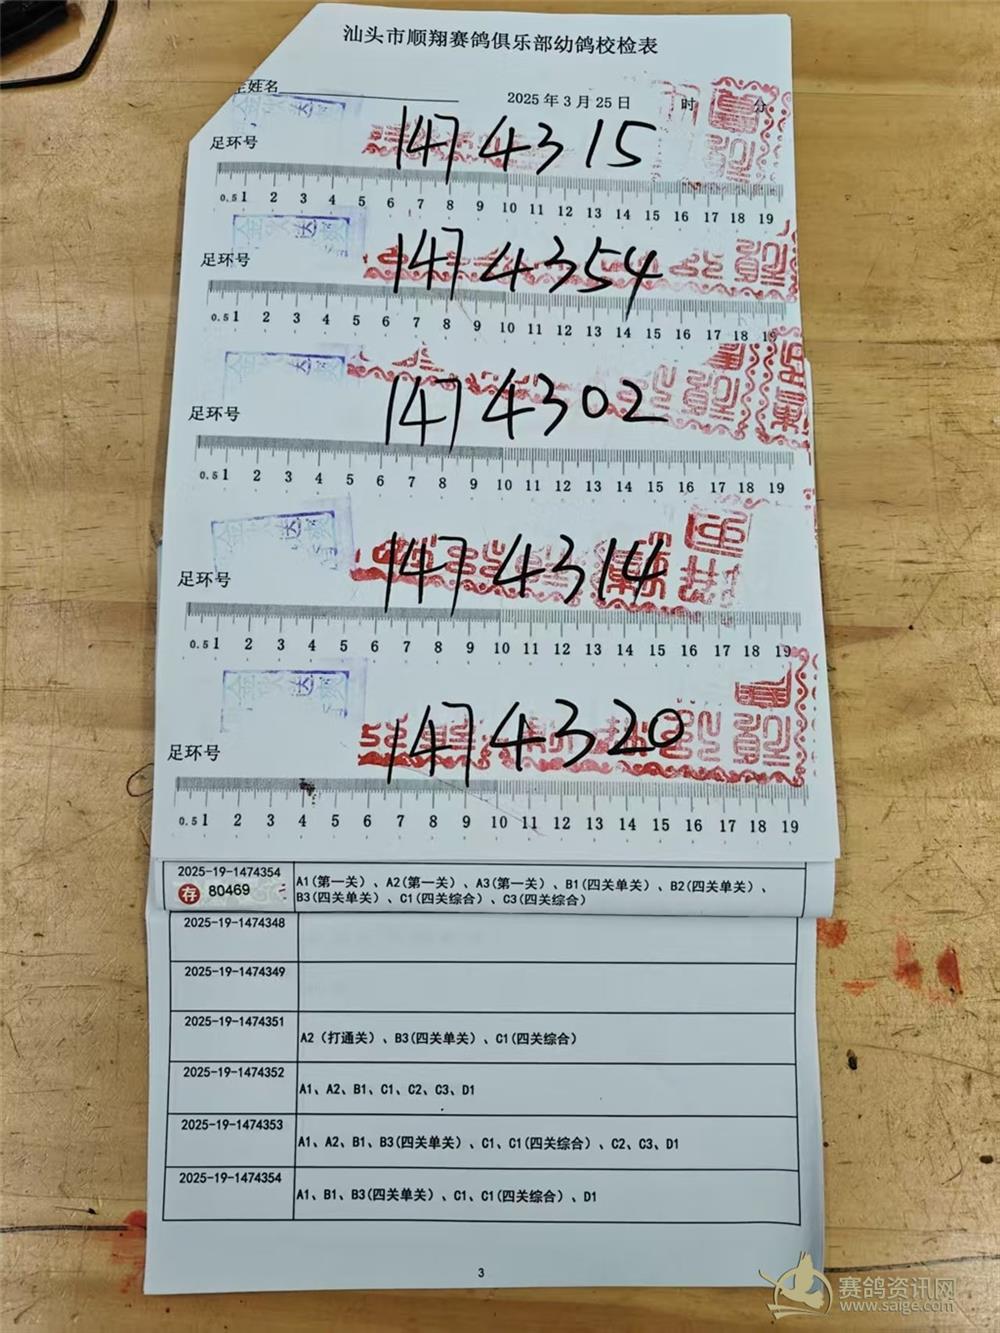 汕头市顺翔赛鸽俱乐部幼鸽校检表
主姓名
2025年3月25日 时 分
足环号 1474315
0.5 1 2 3 4 5 6 7 8 9 10 11 12 13 14 15 16 17 18 19
足环号 1474354
0.5 1 2 3 4 5 6 7 8 9 10 11 12 13 14 15 16 17 18 19
足环号 1474302
0.5 1 2 3 4 5 6 7 8 9 10 11 12 13 14 15 16 17 18 19
足环号 1474314
0.5 1 2 3 4 5 6 7 8 9 10 11 12 13 14 15 16 17 18 19
足环号 1474320
0.5 1 2 3 4 5 6 7 8 9 10 11 12 13 14 15 16 17 18 19
2025-19-1474354
存 80469
A1(第一关)、A2(第一关)、A3(第一关)、B1(四关单关)、B2(四关单关)、
B3(四关单关)、C1(四关综合)、C3(四关综合)
2025-19-1474348
2025-19-1474349
2025-19-1474351
A2（打通关)、B3(四关单关)、C1(四关综合)
2025-19-1474352
A1、A2、B1、C1、C2、C3、D1
2025-19-1474353
A1、A2、B1、B3(四关单关)、C1、C1(四关综合)、C2、C3、D1
2025-19-1474354
A1、B1、B3(四关单关)、C1、C1(四关综合)、D1
3
赛鸽资讯网
www.saige.com